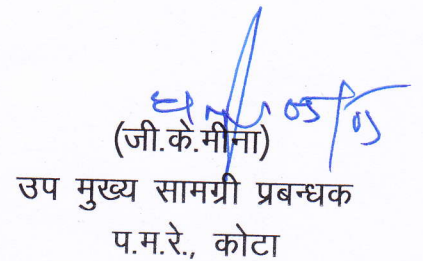 05/05
(जी.के.मीना)
उप मुख्य सामग्री प्रबन्धक
प.म.रे., कोटा